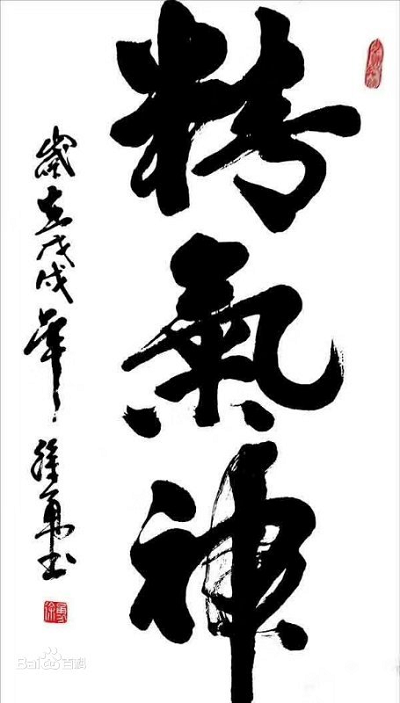 精氣神
歲在戊戌年 徐勇书
Baidu百科